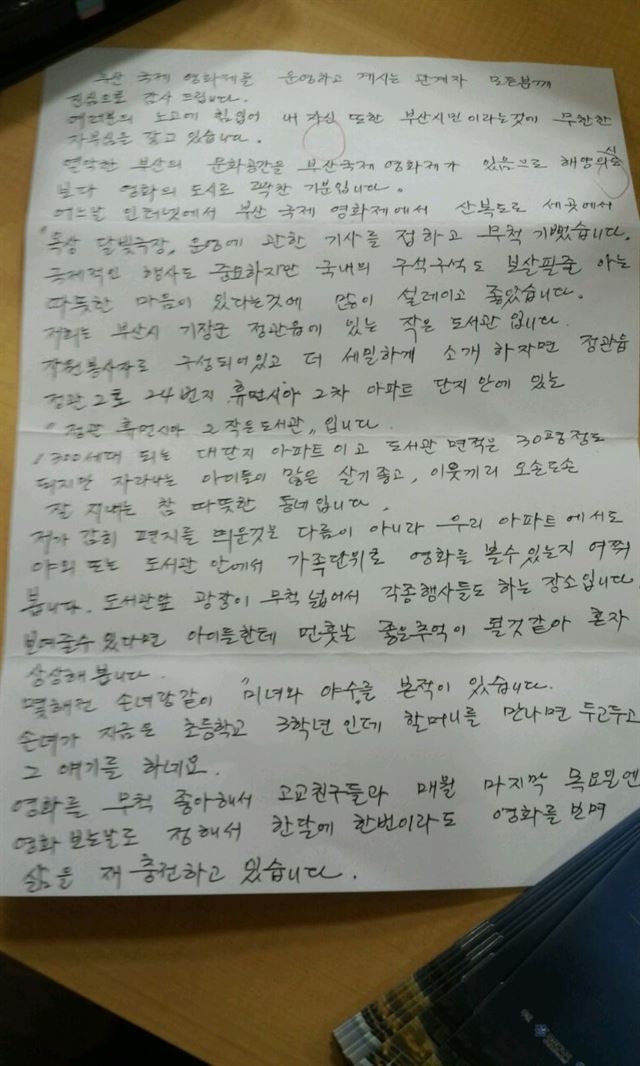 부산 국제 영화제를 운영하고 계시는 관계자 모든분께
진심으로 감사 드립니다.
여러분의 노고에 힘입어 내 자신 또한 부산시민 이라는것에 무한한
자부심을 갖고 있습니다.
열악한 부산의 문화공간을 부산국제 영화제가 있음으로 해양의 도시
보다 영화의 도시로 꽉찬 기분입니다.
어느날 인터넷에서 부산 국제 영화제에서 산복도로 세곳에서
"옥상 달빛극장" 운영에 관한 기사를 접하고 무척 기뻤습니다.
국제적인 행사도 중요하지만 국내의 구석구석도 보살필줄 아는
따뜻한 마음이 있다는것에 많이 설레이고 좋았습니다.
저희는 부산시 기장군 정관읍에 있는 작은 도서관 입니다.
자원봉사자로 구성되어있고 더 세밀하게 소개 하자면 정관읍
정관 2로 24번지 휴먼시아 2차 아파트 단지 안에 있는
"정관 휴먼시아 2 작은도서관" 입니다.
1300세대 되는 대단지 아파트 이고 도서관 면적은 30평정도
되지만 자라나는 아이들이 많은 살기좋고, 이웃끼리 오손도손
잘 지내는 참 따뜻한 동네입니다.
저가 감히 편지를 띄운것은 다름이 아니라 우리 아파트 에서도
야외 또는 도서관 안에서 가족단위로 영화를 볼수 있는지 여쭤
봅니다. 도서관앞 광장이 무척 넓어서 각종행사들도 하는 장소입니다.
보여줄수 있다면 아이들한테 먼훗날 좋은추억이 될것같아 혼자
상상해 봅니다.
몇해전 손녀랑같이 "미녀와 야수"를 본적이 있습니다.
손녀가 지금은 초등학교 3학년 인데 할머니를 만나면 두고두고
그 얘기를 하네요.
영화를 무척 좋아해서 고교친구들과 매월 마지막 목요일엔
영화 보는날로 정해서 한달에 한번이라도 영화를 보며
삶을 재 충전하고 있습니다.